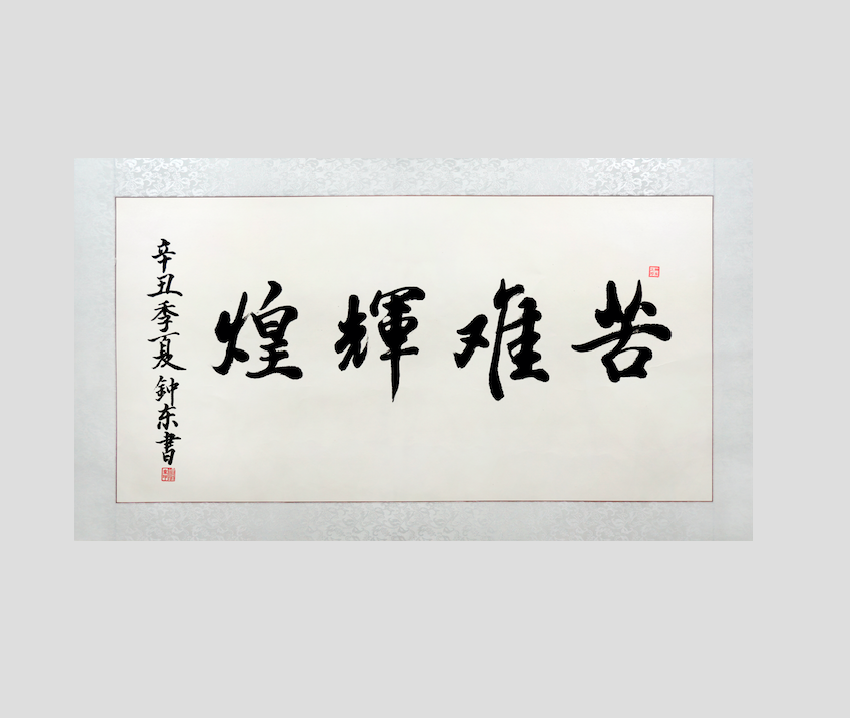 苦难輝煌
辛丑季夏鈡东書